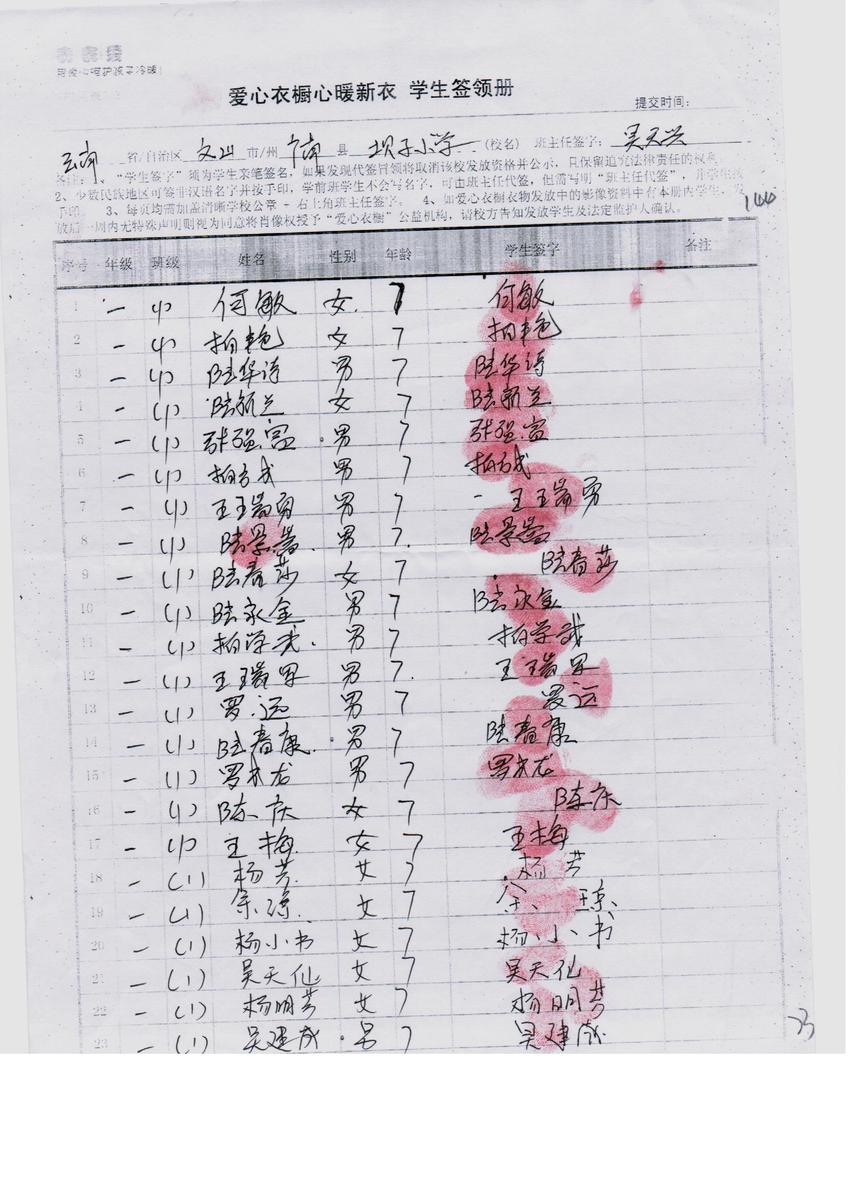 爱心衣橱心暖新衣 学生签领册
提交时间:
云南 省/自治区 文山 市/州 广南 县 坝子小学 (校名) 班主任签字: 吴天兴
备注: 1、“学生签字”须为学生亲笔签名,如果发现代签冒领将取消该校发放资格并公示,且保留追究法律责任的权利
2、少数民族地区可签非汉语名字并按手印,学前班学生不会写名字,可由班主任代签,但需写明“班主任代签”,并学生按
手印。 3、每页均需加盖清晰学校公章+右上角班主任签字。 4、如爱心衣橱衣物发放中的影像资料中有本册内学生,发
放后一周内无特殊声明则视为同意将肖像权授予“爱心衣橱”公益机构,请校方告知发放学生及法定监护人确认。
144
序号 年级 班级 姓名 性别 年龄 学生签字 备注
1 一 (1) 何敏 女 7 何敏
2 一 (1) 柏艳 女 7 柏艳
3 一 (1) 陆华诗 男 7 陆华诗
4 一 (1) 陆兰 女 7 陆兰
5 一 (1) 张强富 男 7 张强富
6 一 (1) 柏成 男 7 柏成
7 一 (1) 王王瑞男 男 7 王王瑞男
8 一 (1) 陆景嵩 男 7 陆景嵩
9 一 (1) 陆春莎 女 7 陆春莎
10 一 (1) 陆永金 男 7 陆永金
11 一 (1) 柏学武 男 7 柏学武
12 一 (1) 王瑞 男 7 王瑞
13 一 (1) 罗运 男 7 罗运
14 一 (1) 陆春康 男 7 陆春康
15 一 (1) 罗龙 男 7 罗龙
16 一 (1) 陈庆 女 7 陈庆
17 一 (1) 王梅 女 7 王梅
18 一 (1) 杨芳 女 7 杨芳
19 一 (1) 余琼 女 7 余琼
20 一 (1) 杨小书 女 7 杨小书
21 一 (1) 吴天仙 女 7 吴天仙
22 一 (1) 杨明芳 女 7 杨明芳
23 一 (1) 吴建成 男 7 吴建成
23